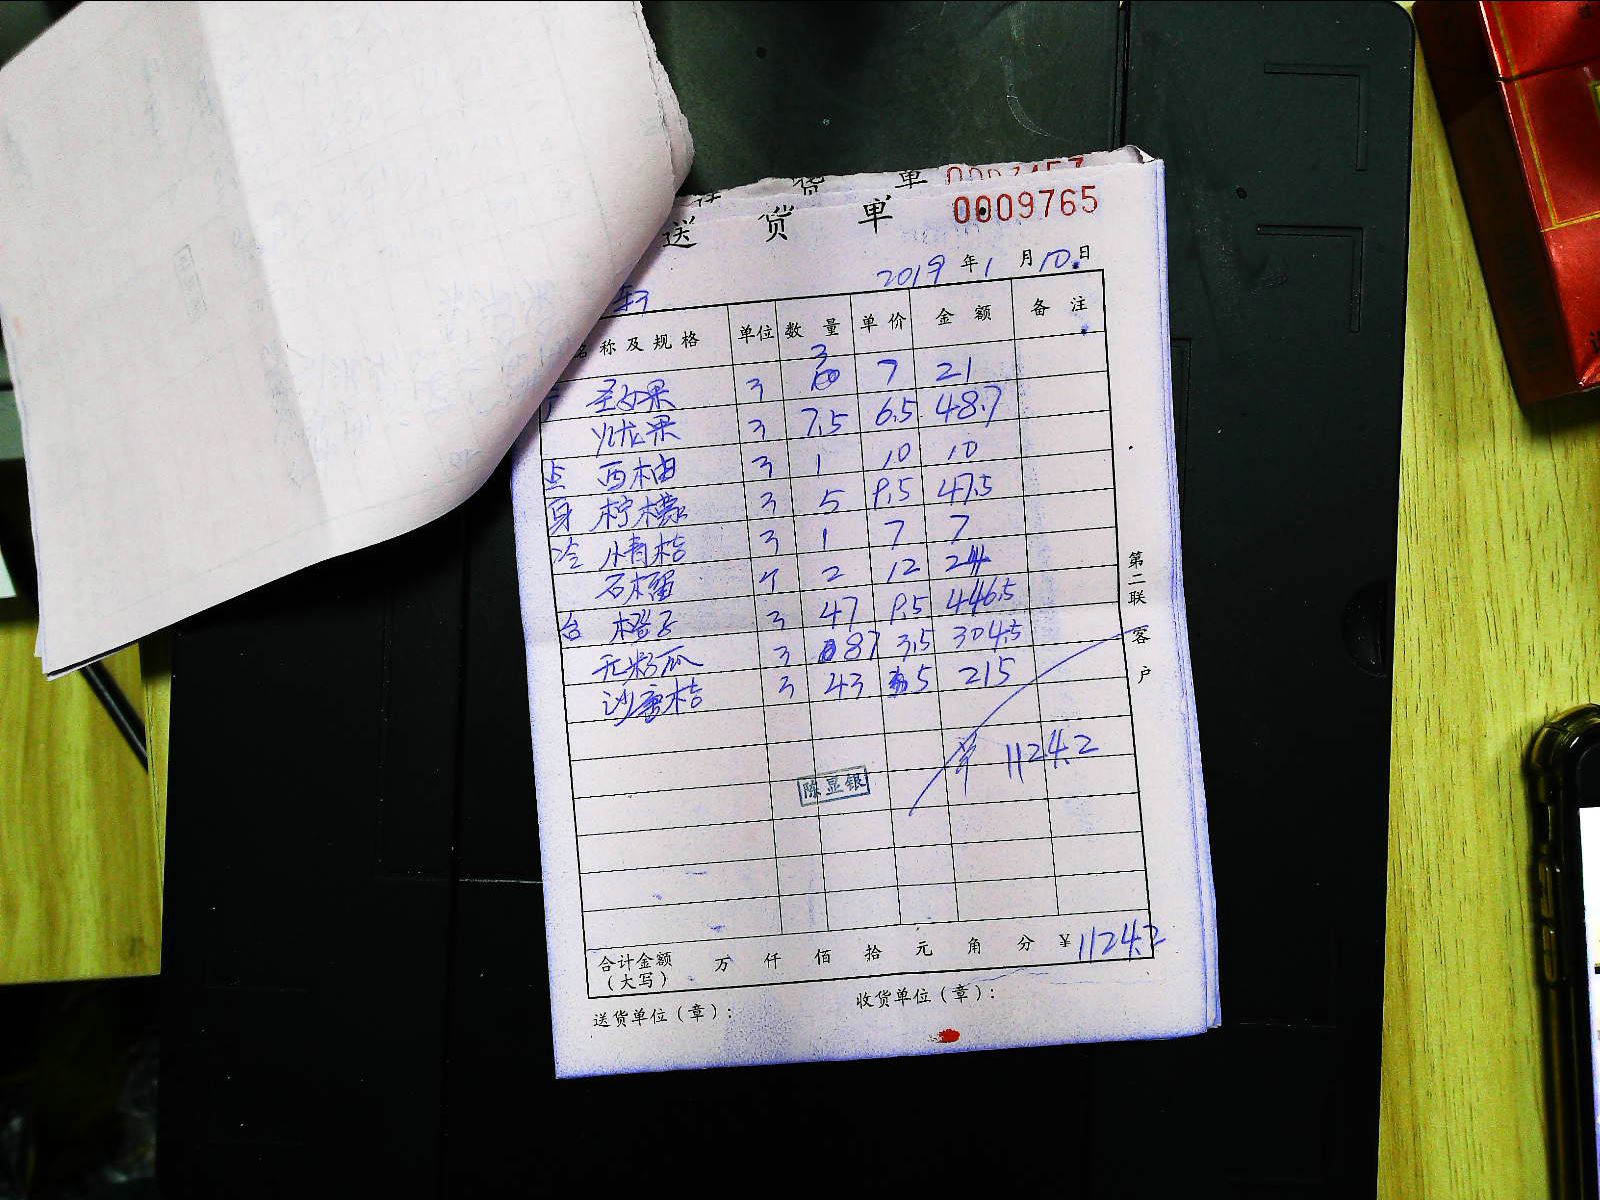 货 单
送 货 单 0009765
2019 年 1 月 10 日
名称及规格 单位 数量 单价 金额 备注
圣女果 3 3 7 21
火龙果 3 7.5 6.5 48.7
点 西柚 3 1 10 10
身 柠檬 3 5 9.5 47.5
冷 小青桔 3 1 7 7
石榴 个 2 12 24
台 橙子 3 47 9.5 446.5
无籽瓜 3 87 3.5 304.5
沙唐桔 3 43 5 215
1124.2
陈显银
合计金额(大写) 万 仟 佰 拾 元 角 分 ¥1124.2
送货单位(章): 收货单位(章):
第二联 客户